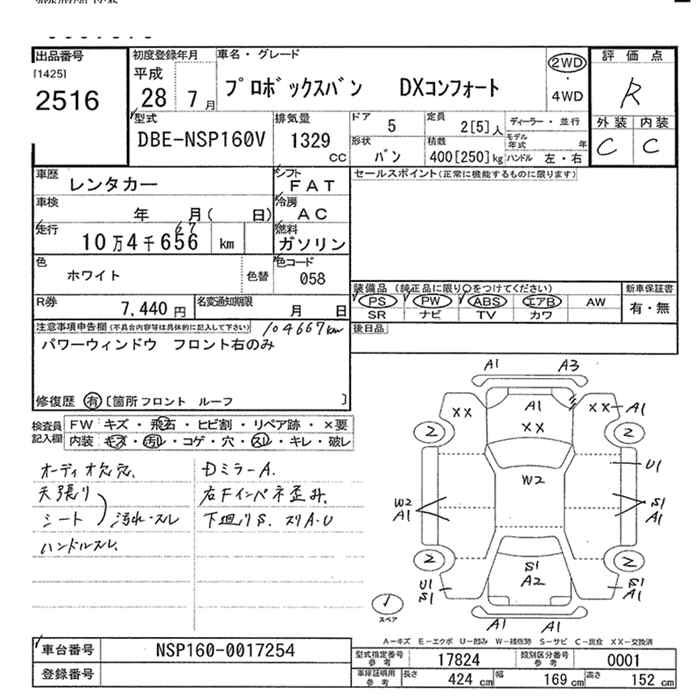 出品番号
[1425]
2516
初度登録年月
平成
28 年 7 月
車名・グレード
プロボックスバン DXコンフォート
2WD
・
4WD
評価点
R
外装 内装
C C
型式
DBE-NSP160V
排気量
1329 CC
ドア 5
定員 2[5]人
形状 バン
積載 400[250]kg
ディーラー・並行
モデル年式 年
ハンドル 左・右
車歴 レンタカー
シフト FAT
車検 年 月( 日)
冷房 AC
走行 10万4千656 km
67
燃料 ガソリン
色 ホワイト
色替
色コード 058
R券 7,440 円
名変通知期限 月 日
セールスポイント(正常に機能するものに限ります)
装備品 (純正品に限り○をつけてください)
PS PW ABS エアB AW
SR ナビ TV カワ
新車保証書
有・無
後日品
注意事項申告欄(不具合内容等は具体的に記入して下さい)
104667km
パワーウィンドウ フロント右のみ
修復歴 有 [箇所 フロント ルーフ ]
検査員記入欄
FW キズ・飛石・ヒビ割・リペア跡・×要
内装 キズ・汚れ・コゲ・穴・スレ・キレ・破レ
オーディオ欠品穴.
天張り
シート
汚れ・スレ
ハンドルスレ.
DミラーA.
右Fインパネ歪み.
下廻りS. スリA・U
A1 A3
XX A1 XX A1
XX
2 2
U1
W2
W2 A1
S1 A1
2 2
S1 A2
U1 S1
S1 A1
A1 A1
スペア
A-キズ E-エクボ U-凹み W-補修跡 S-サビ C-腐食 XX-交換済
車台番号 NSP160-0017254
登録番号
型式指定番号 参考 17824
類別区分番号 参考 0001
車庫証明用 参考
長さ 424 cm
幅 169 cm
高さ 152 cm